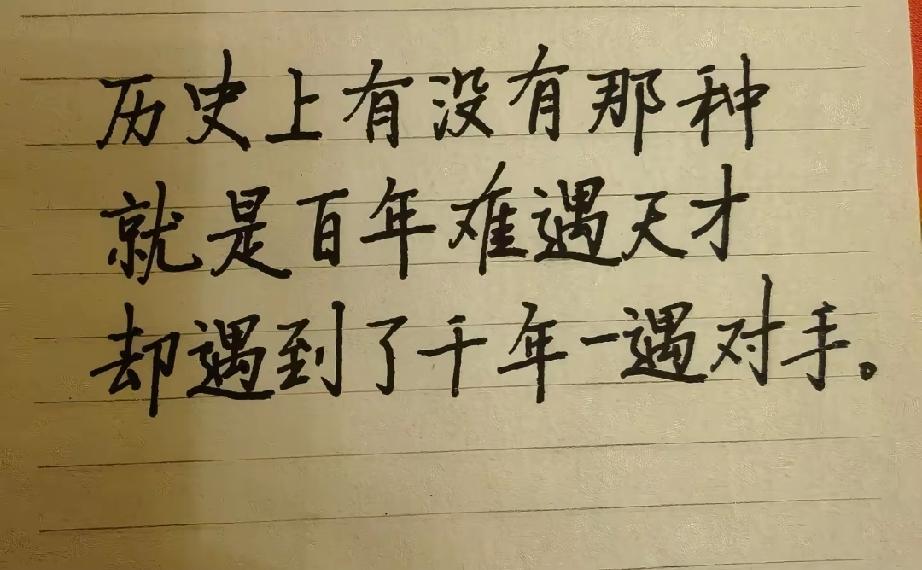 历史上有没有那种
就是百年难遇天才
却遇到了千年一遇对手。